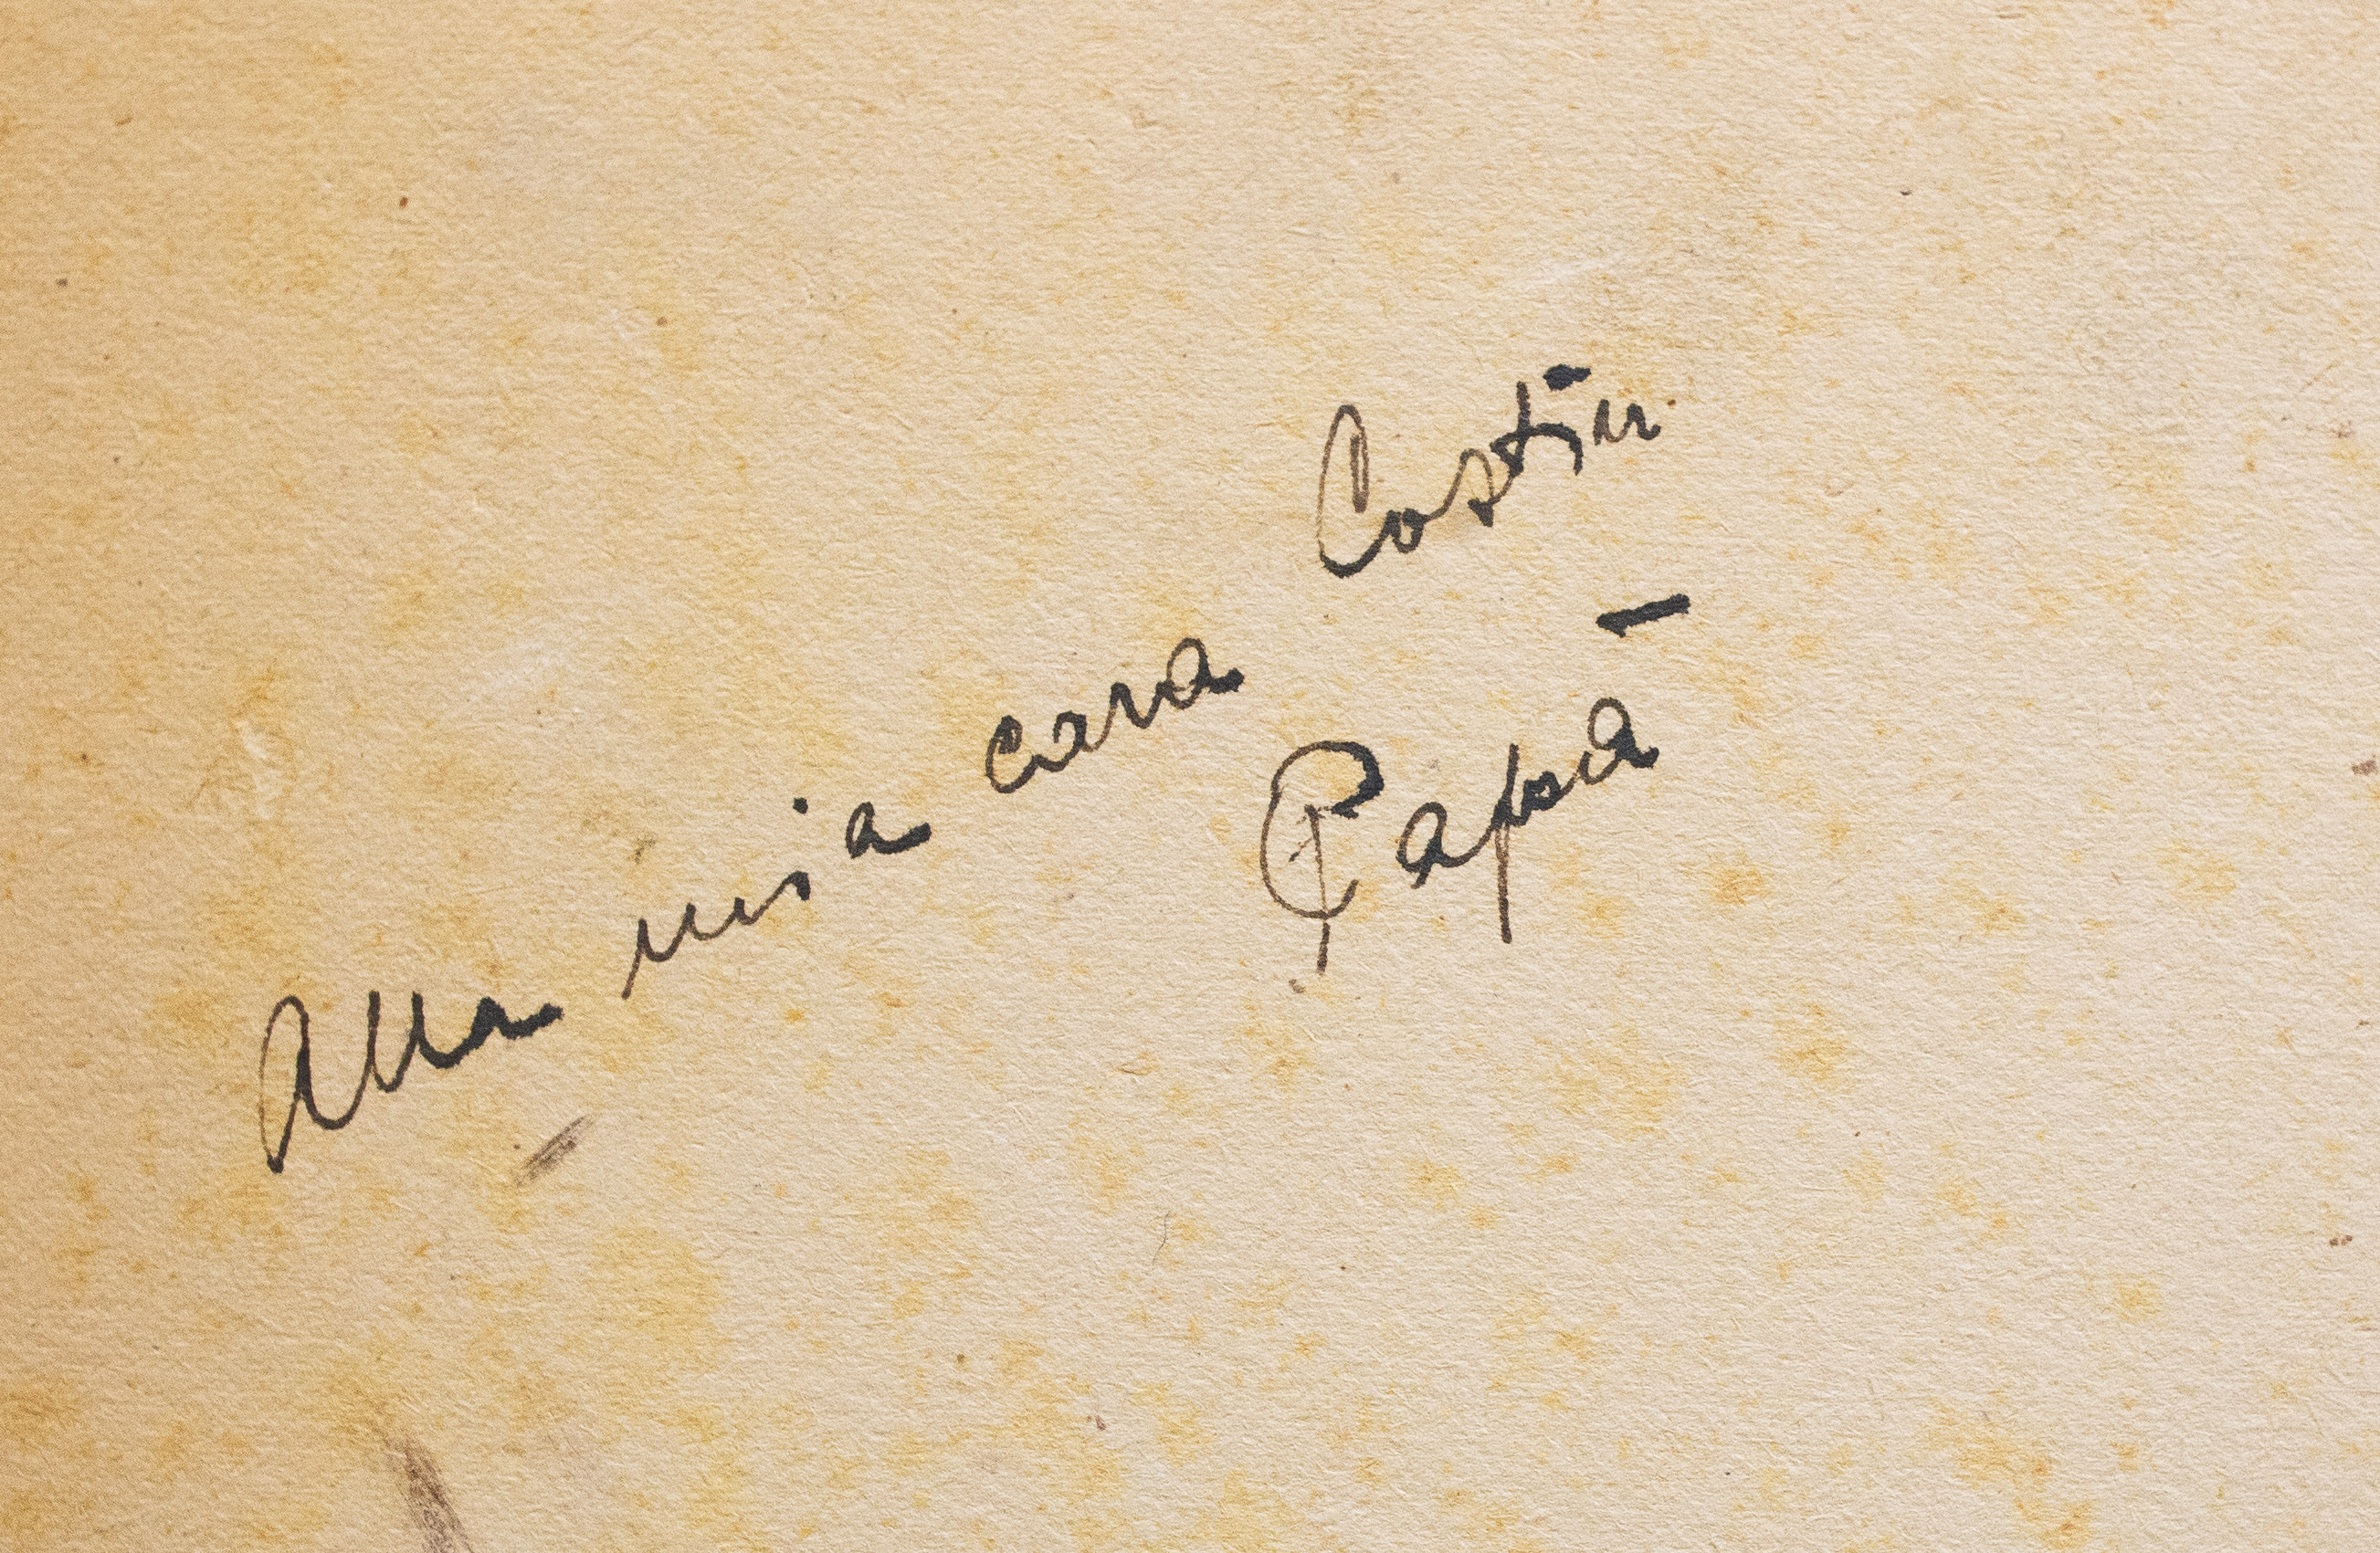 Alla mia cara Costin
Papà